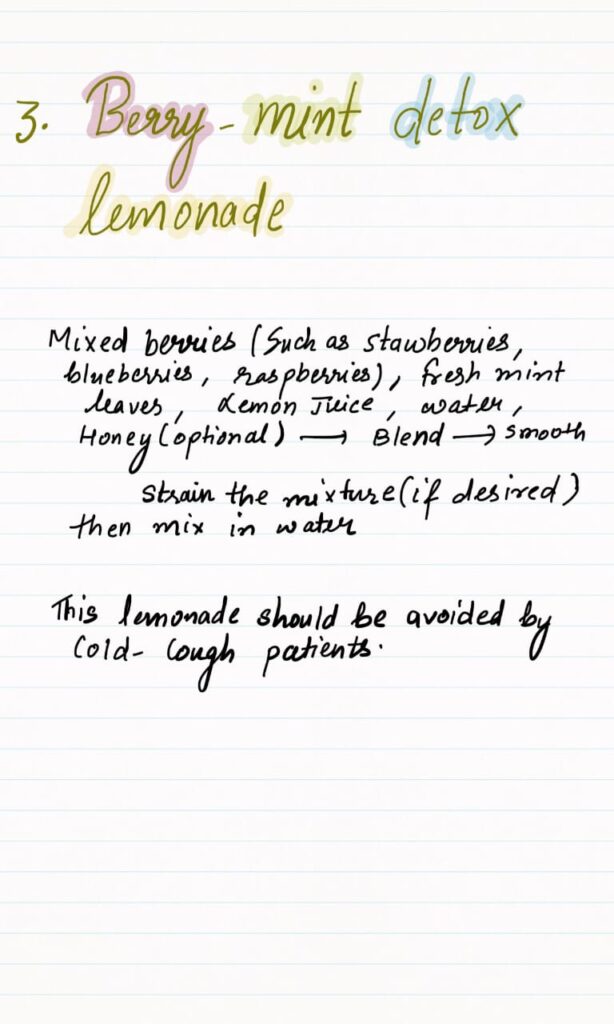 3. Berry - mint detox
lemonade
Mixed berries (Such as stawberries,
blueberries, raspberries), fresh mint
leaves, Lemon Juice, water,
Honey (optional) → Blend → smooth
Strain the mixture (if desired)
then mix in water
This lemonade should be avoided by
Cold- Cough patients.